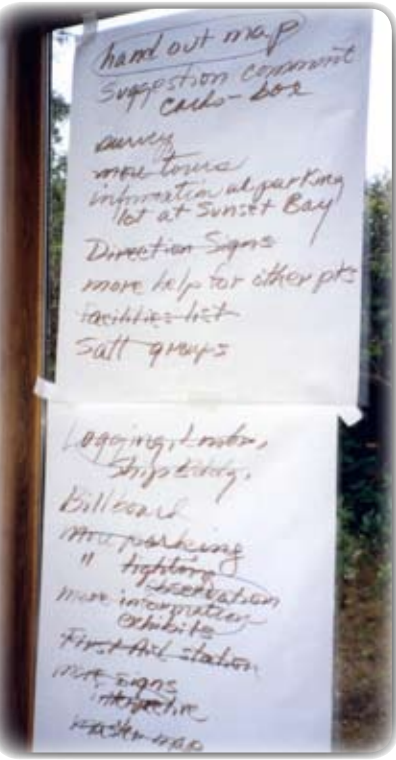 hand out map
Suggestion comment
cards - box
survey
more tours
information at parking
lot at Sunset Bay
Direction Signs
more help for other pts
facilities list
Salt groups
Logging, Lumber,
Ship Bldg.
Billboard
more parking
" lighting
observation
more information
exhibits
First Aid station
more signs
interpretive
map